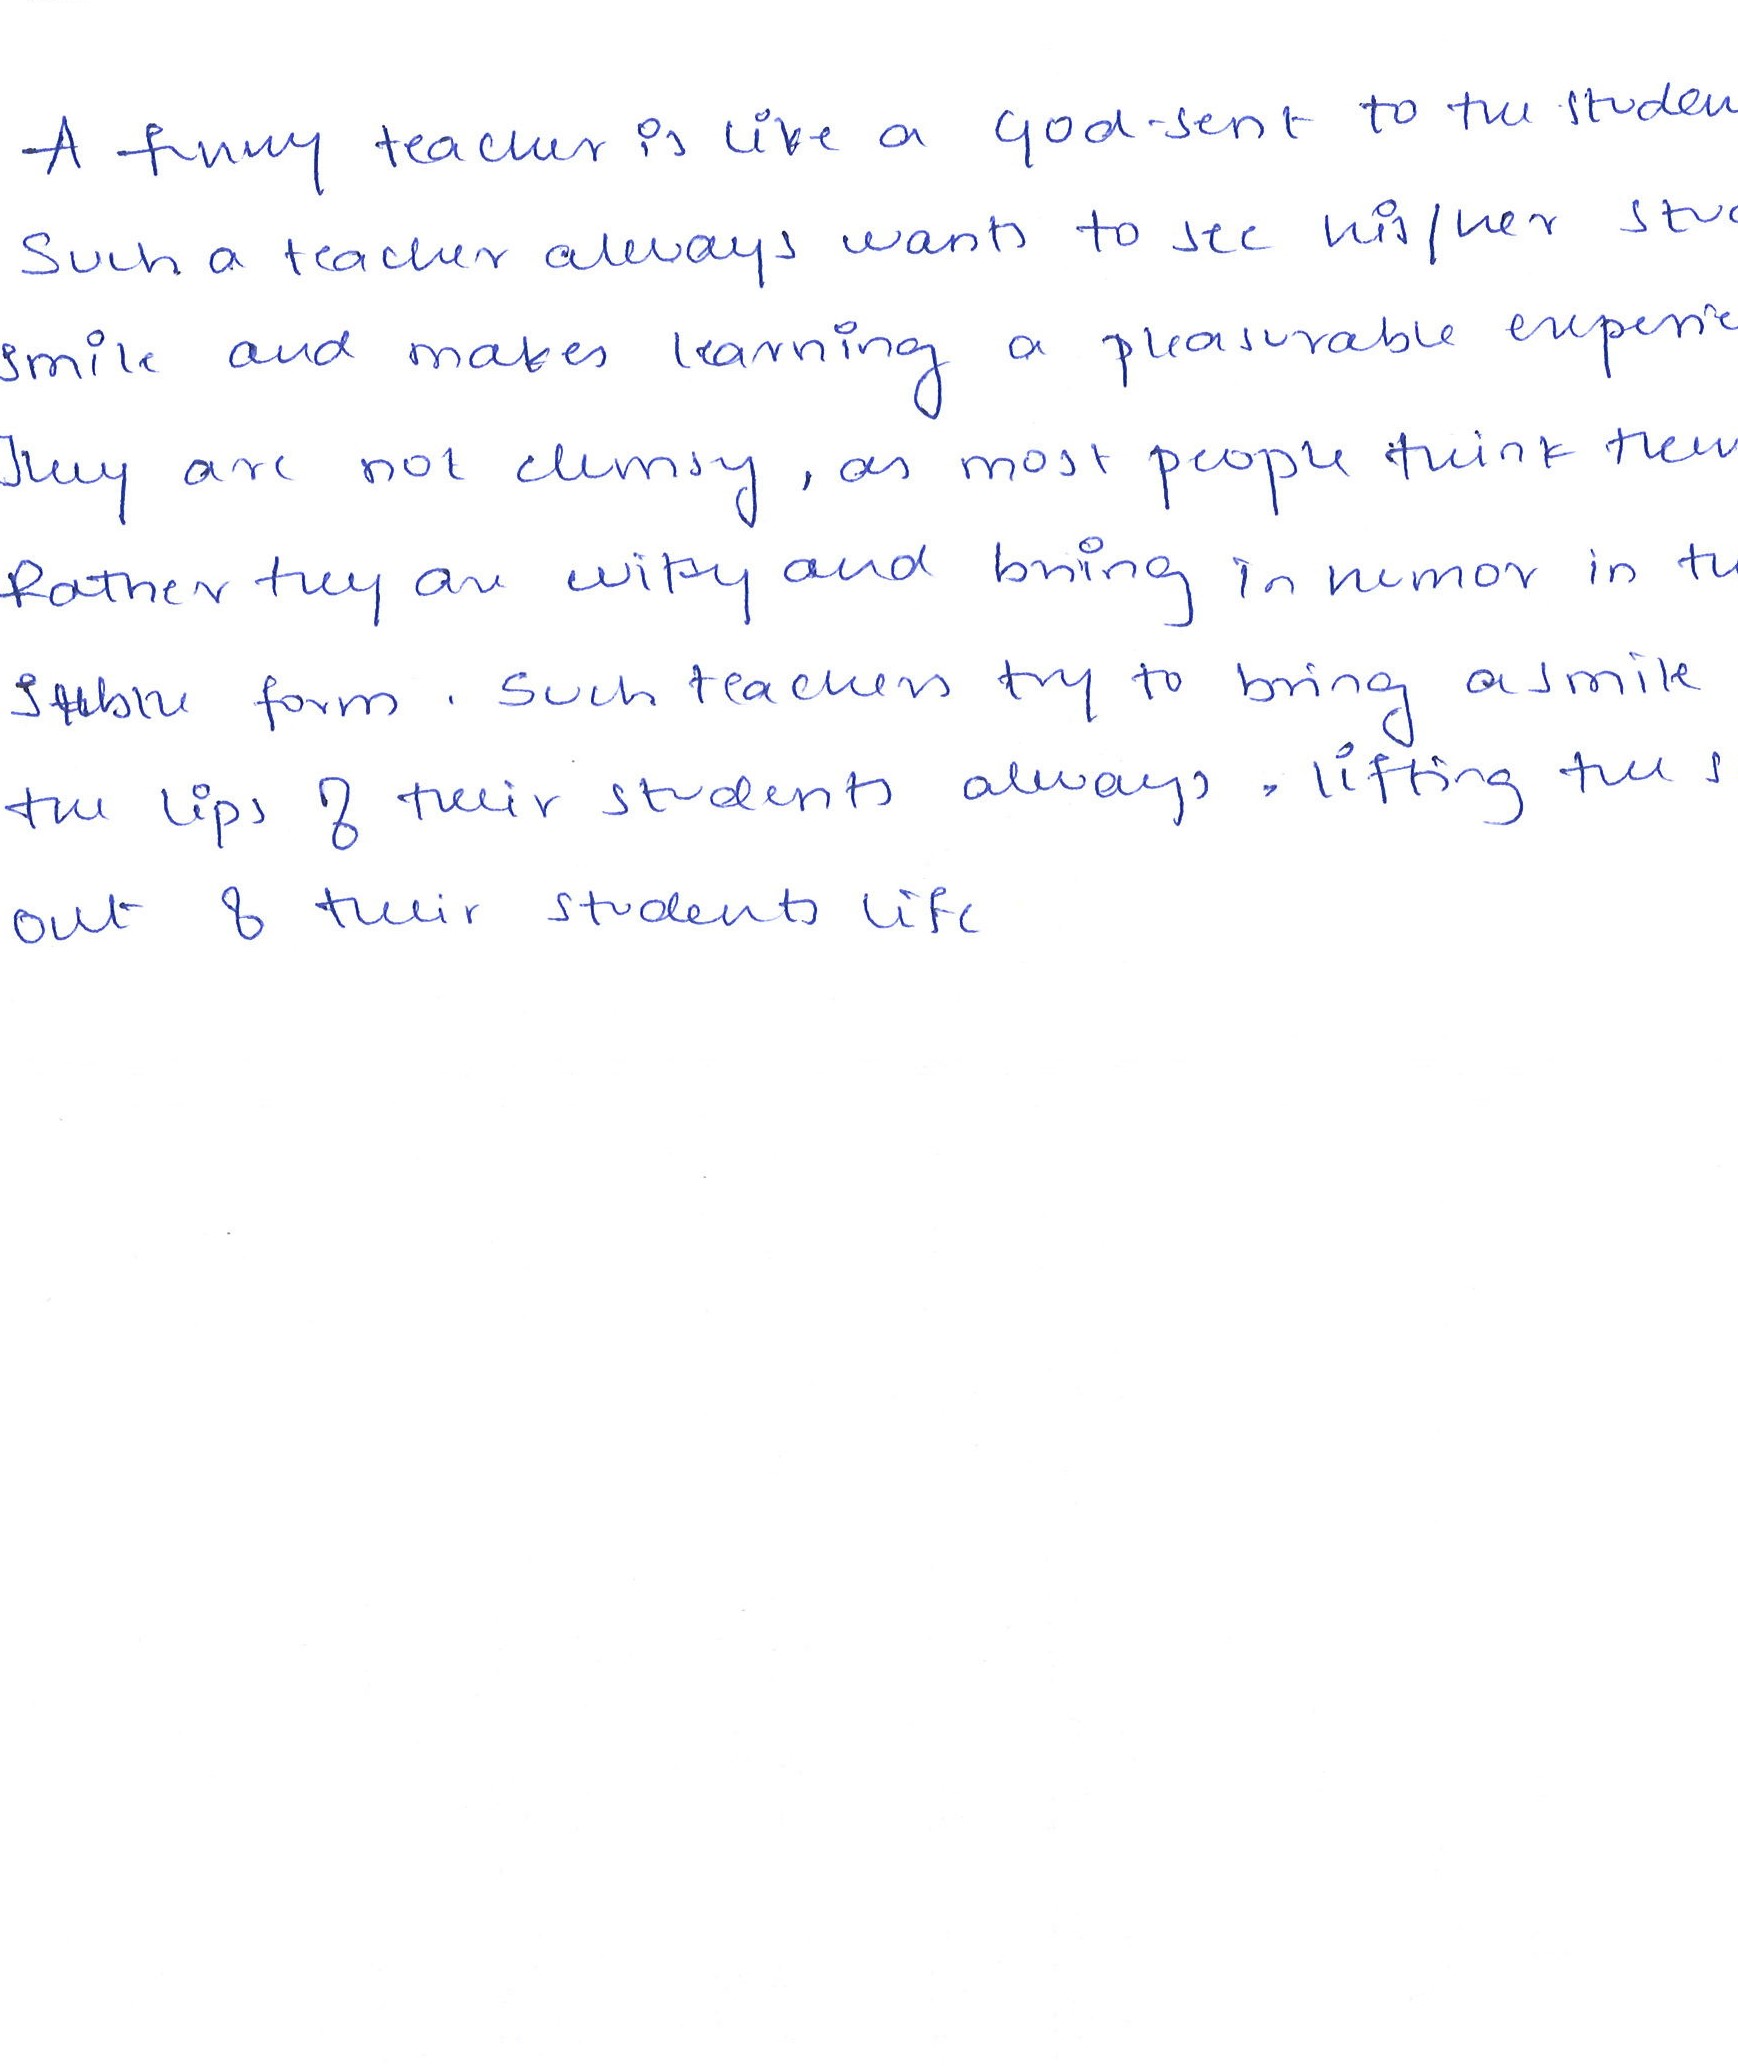 A funny teacher is like a God-sent to the studen
Such a teacher always wants to see his/her stud
smile and makes learning a pleasurable experie
They are not clumsy, as most people think them
Rather they are witty and bring in humor in the
subtle form. Such teachers try to bring a smile
the lips of their students always. lifting the s
out of their students life